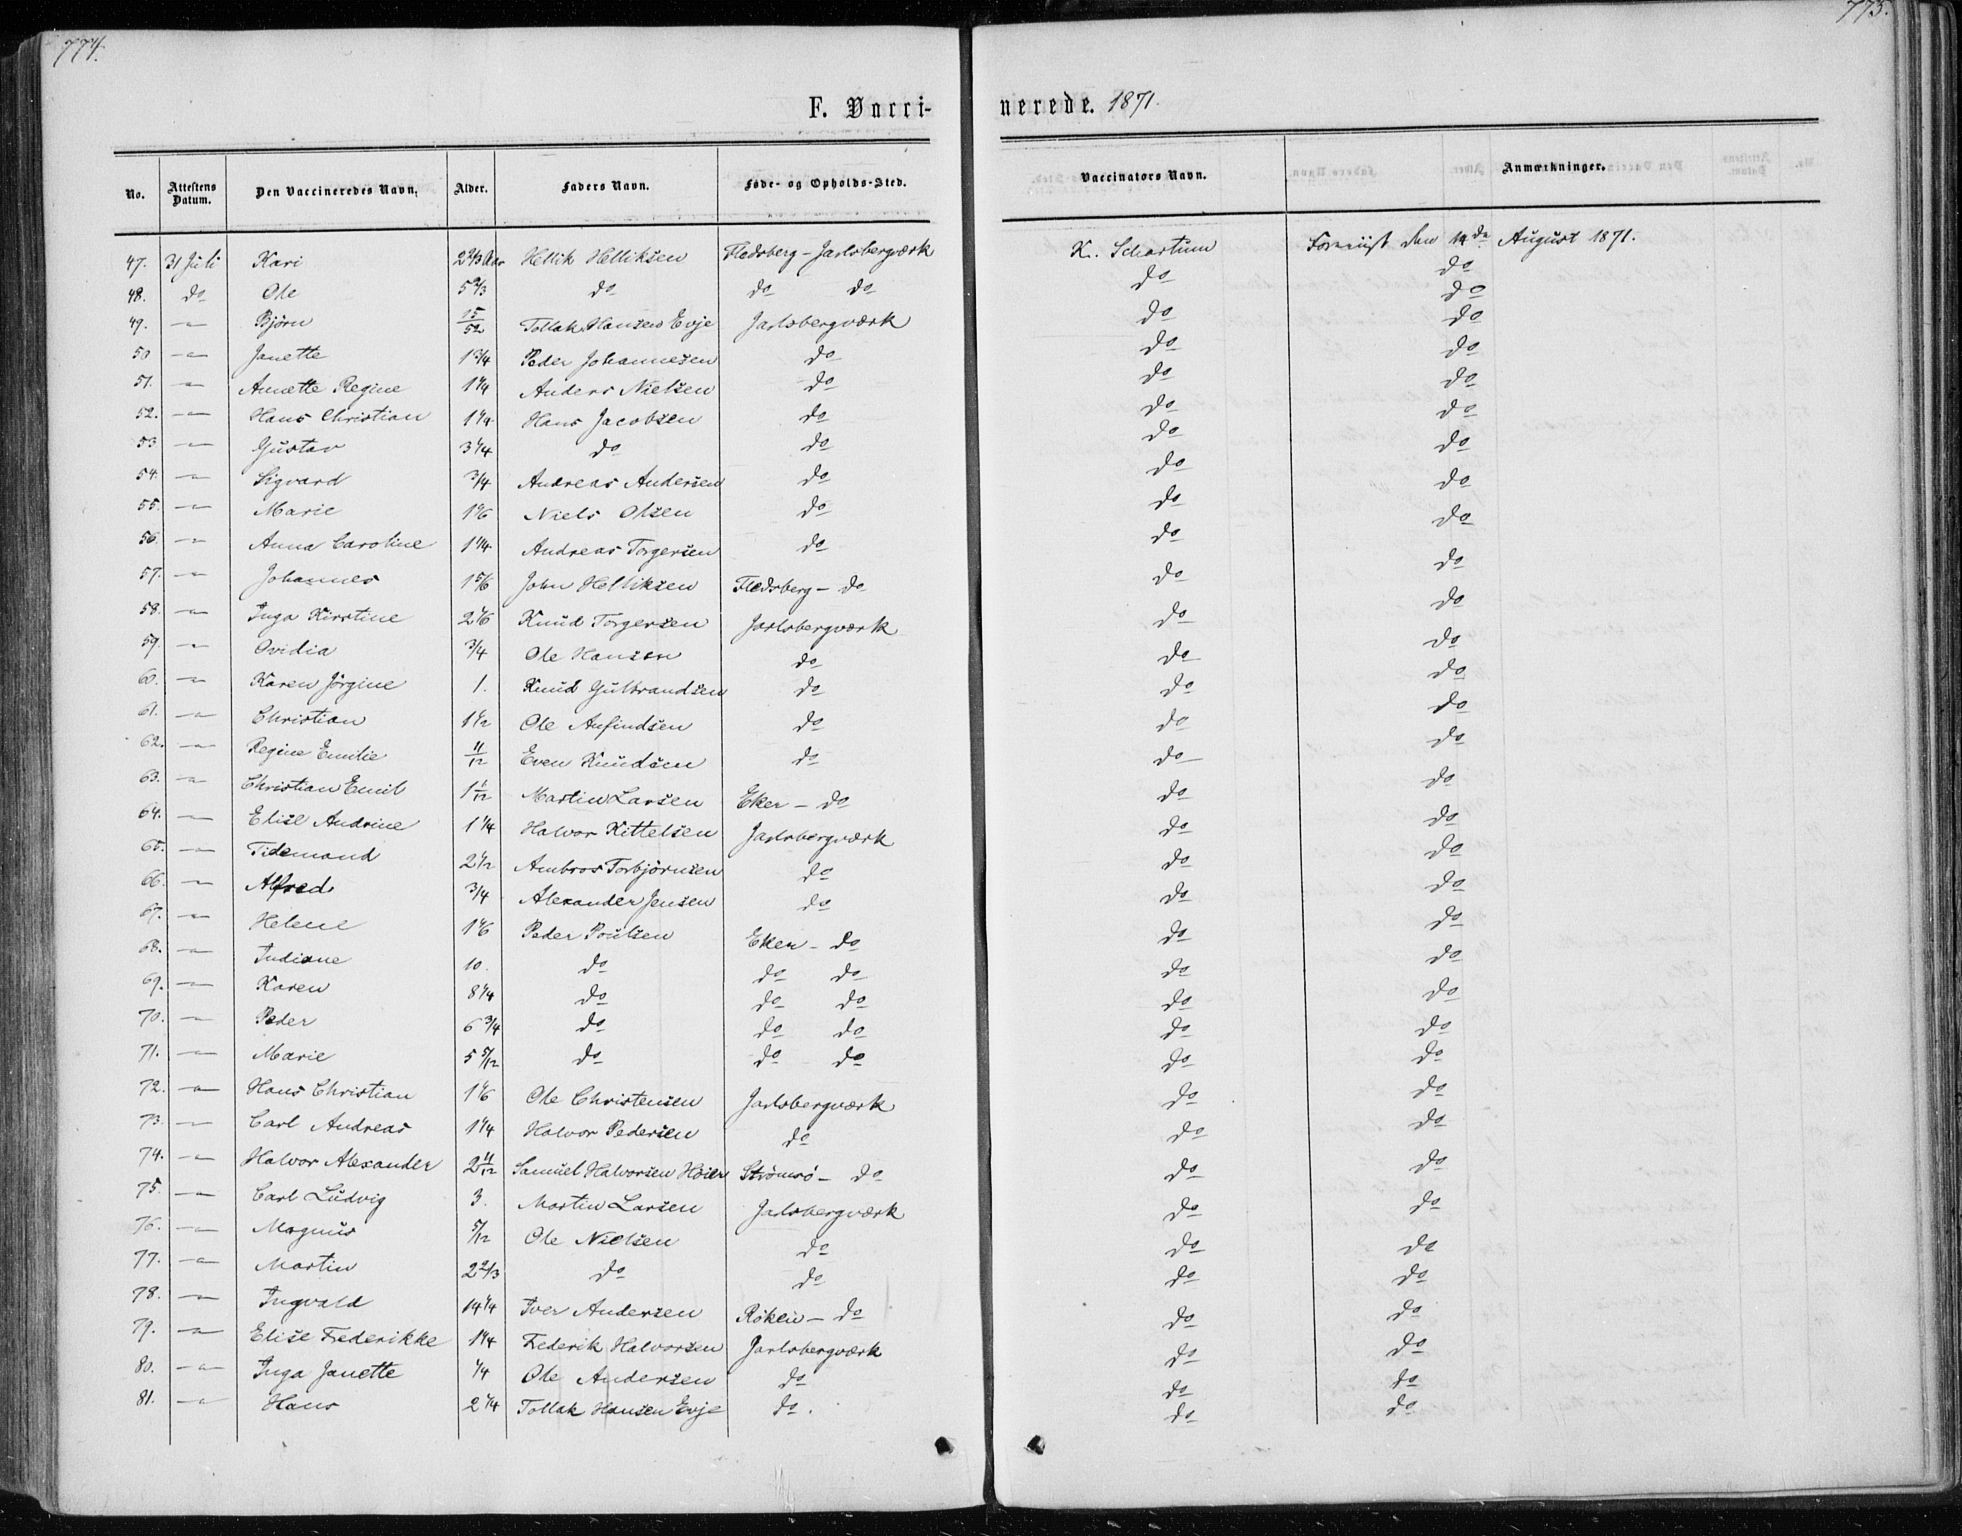 774.
775.
F. Vacci-
nerede. 1871.
No. Attestens Datum. Den Vaccineredes Navn. Alder. Faders Navn. Føde- og Opholds-Sted. Vaccinators Navn. Anmærkninger.
47. 31 Juli Kari 2 2/3 Aar Hellik Helliksen Flesberg - Jarlsbergværk K. Schartum Foreviist den 14de August 1871.
48. do Ole 5 2/3 do do do do do
49. — Bjørn 15/52 Tollak Hansen Evje Jarlsbergværk do do
50 — Janette 1 3/4 Peder Johannesen do do do
51. — Anette Regine 1 1/4 Anders Nielsen do do do
52. — Hans Christian 1 1/4 Hans Jacobsen do do do
53 — Gustav 3 1/4 do do do do
54. — Sigvard 3/4 Andreas Andersen do do do
55. — Marie 1 1/6 Niels Olsen do do do
56. — Anna Caroline 1 1/4 Andreas Torgersen do do do
57. — Johannes 1 5/6 John Helliksen Flesberg - do do do
58. — Inga Kirstine 2 1/6 Knud Torgersen Jarlsbergværk do do
59. — Ovidia 3/4 Ole Hansen do do do
60. — Karen Jørgine 1. Knud Gulbrandsen do do do
61. — Christian 1 1/2 Ole Anfindsen do do do
62. — Regine Emilie 11/12 Even Knudsen do do do
63. — Christian Emil 1 1/12 Martin Larsen Eker - do do do
64. — Elise Andrine 1 1/4 Halvor Kittelsen Jarlsbergværk do do
65. — Tidemand 2 1/2 Ambros Torbjørnsen do do do
66. — Alfred 3/4 Alexander Jensen do do do
67. — Helene 1 1/6 Peder Poulsen Eker - do do do
68. — Indiane 10. do do do do do
69. — Karen 8 1/4 do do do do do
70. — Peder 6 3/4 do do do do do
71. — Marie 5 5/12 do do do do do
72. — Hans Christian 1 1/6 Ole Christensen Jarlsbergværk do do
73. — Carl Andreas 1 1/4 Halvor Pedersen do do do
74. — Halvor Alexander 2 11/12 Samuel Halvorsen Høier Strømsø - do do do
75. — Carl Ludvig 3. Martin Larsen Jarlsbergværk do do
76. — Magnus 5/12 Ole Nielsen do do do
77. — Martin 2 2/3 do do do do
78. — Ingvald 14 1/4 Iver Andersen Røken - do do do
79. — Elise Frederikke 1 1/4 Frederik Halvorsen Jarlsbergværk do do
80. — Inga Janette 1/4 Ole Andersen do do do
81. — Hans 2 1/4 Tollak Hansen Evje do. do do